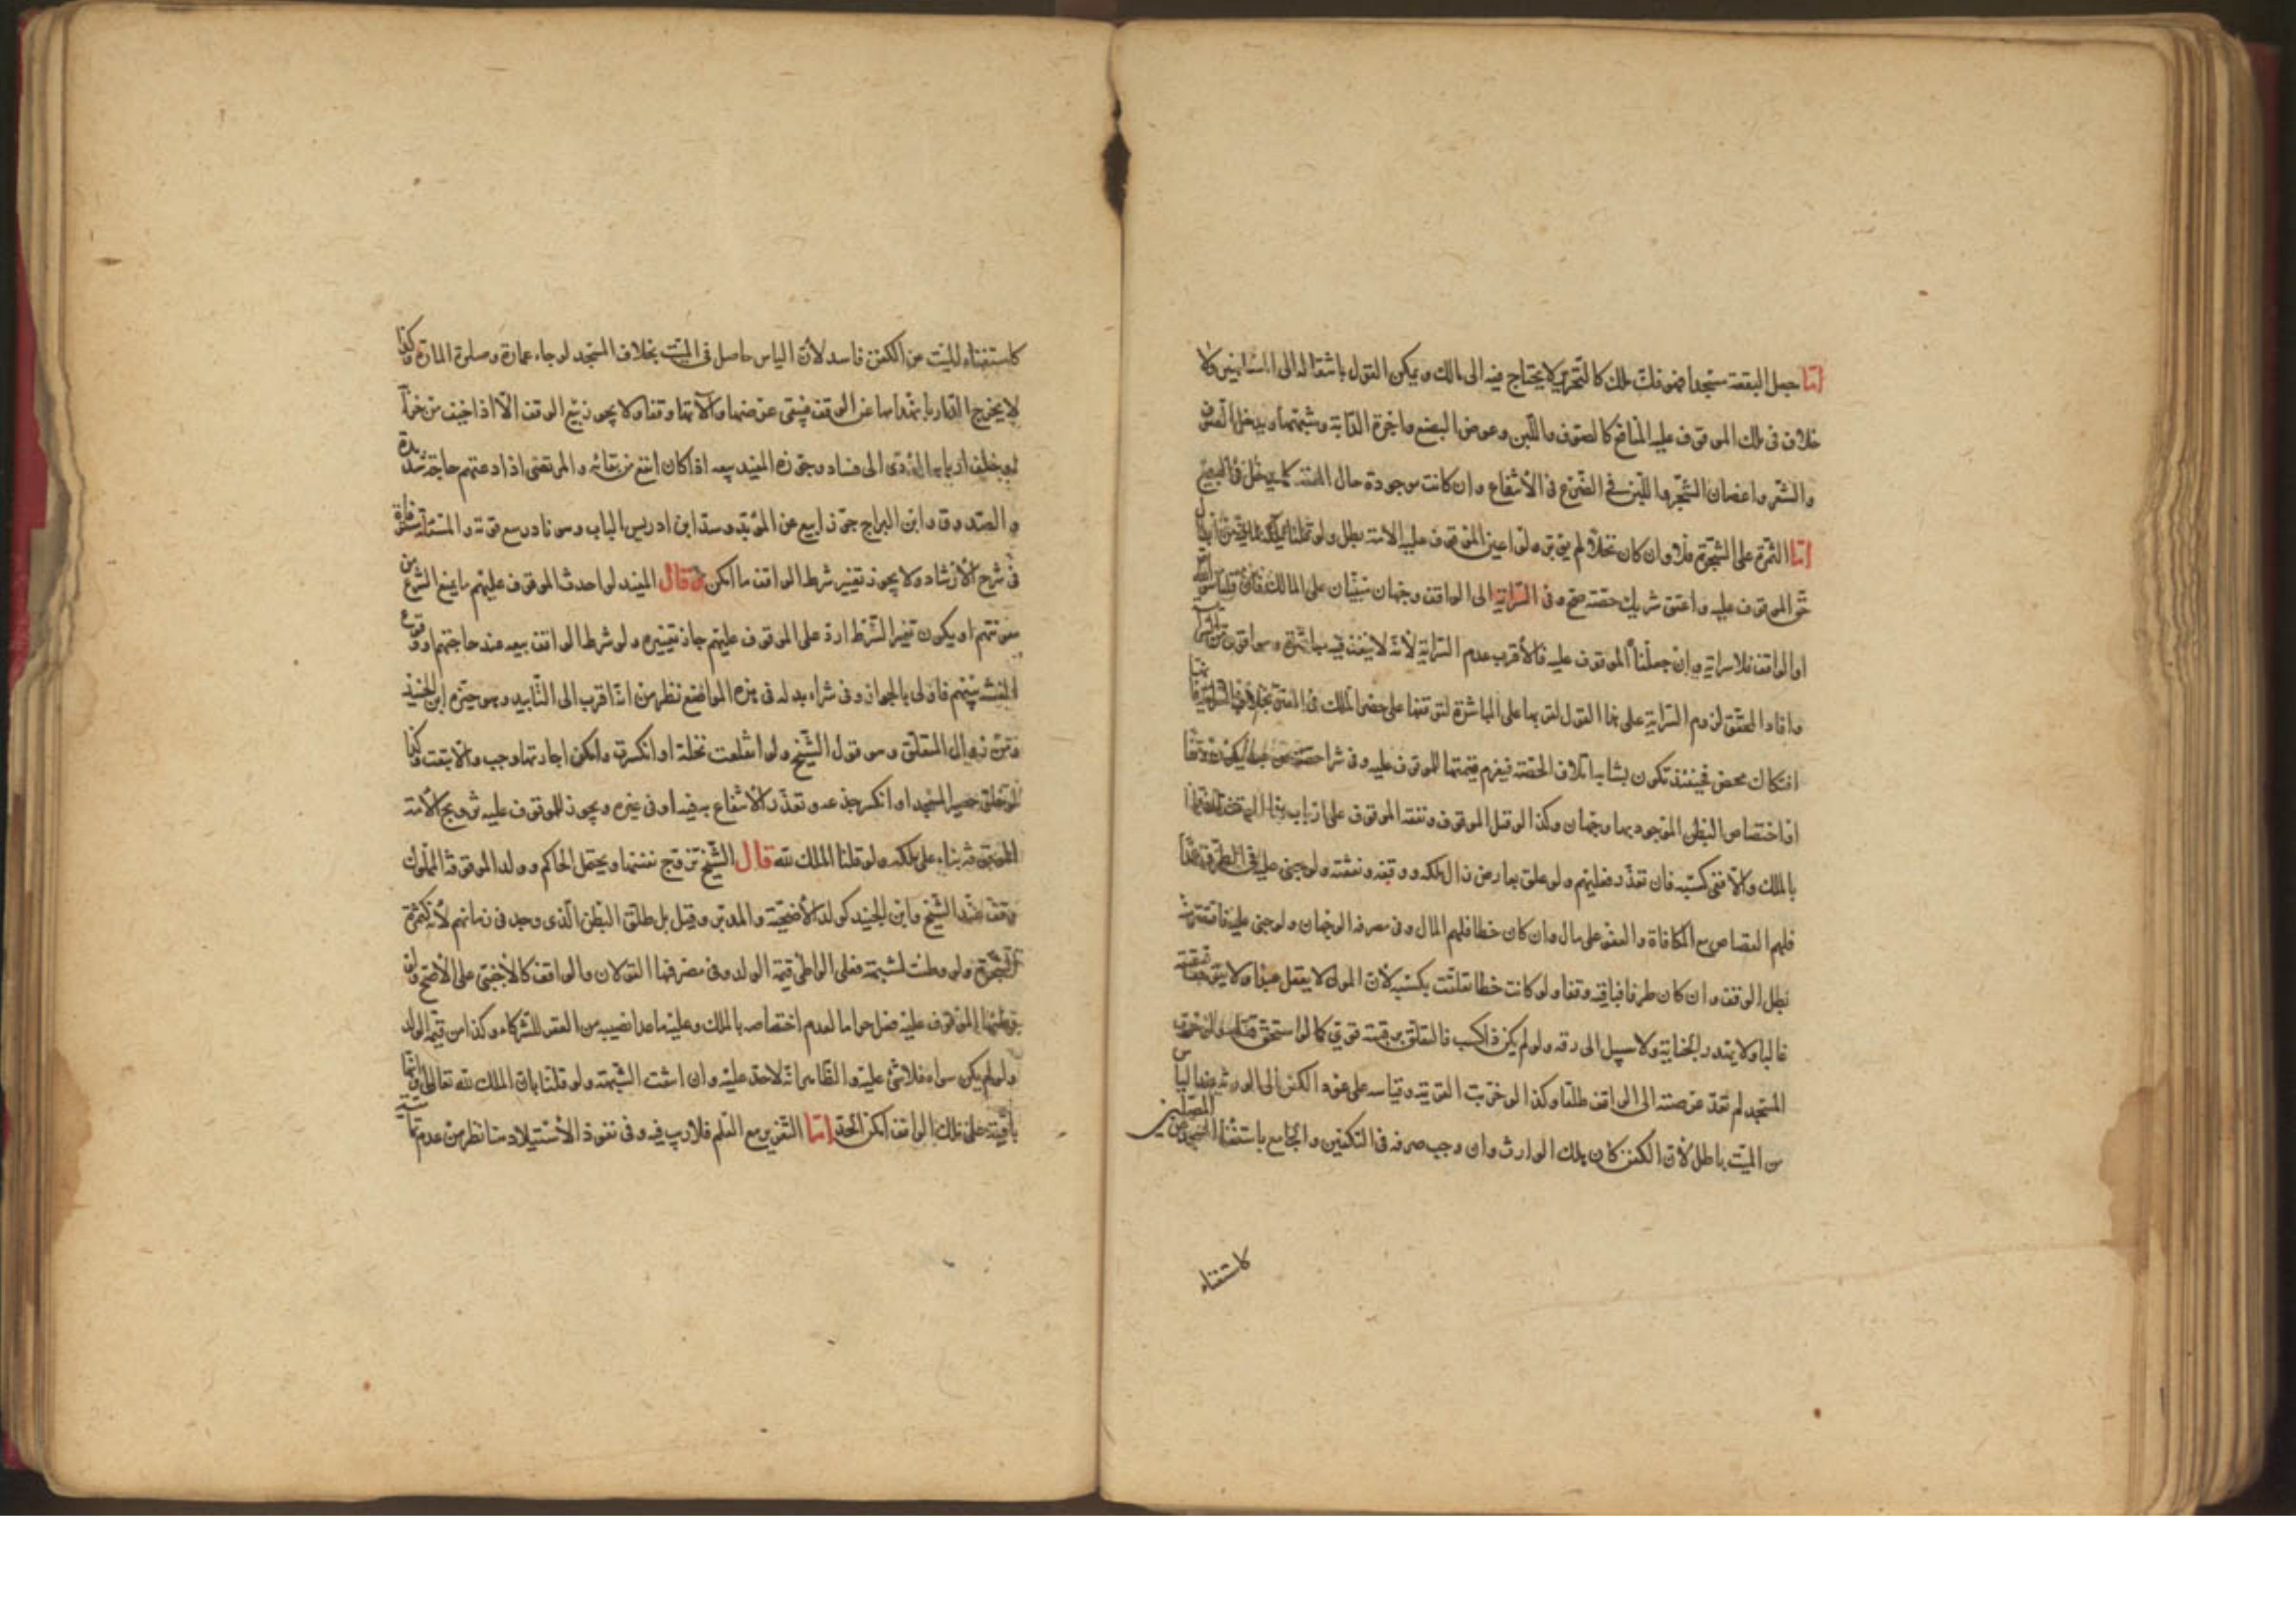 امّا جعل البقعة مسجدا فهو فكّ ملك كالتحرير لا يحتاج فيه الى مالك ويمكن القول بانتقاله الى المسلمين ولا
خلاف فى ملك الموقوف عليه المنافع كالصوف واللبن وعوض البضع واجرة الدابة وشبهها ويدخل الصوف
والشعر واغصان الشجر واللبن فى الضرع فى الانتفاع وان كانت موجودة حال العقد كما يدخل فى البيع
امّا الثمرة على الشجرة فلا وان كان نخلا لم يؤبّر ولو اعتق الموقوف عليه الامة بطل ولو قلنا بملكه
حقّ الموقوف عليه واعتق شريك حصته صحّ وفى السراية الى الواقف وجهان مبنيان على المالك فان قلنا هو الله
او الواقف فلا سراية وان جعلنا الموقوف عليه فالاقرب عدم السراية لانه لا ينفذ فيه مباشرة وهو اقوى من السراية
وافاد المحقق لزوم السراية على هذا القول لقربها على المباشرة لتوقفها على حضر الملك فى المعتق بخلاف السراية
افتكاك محض فحينئذ تكون بمشابه اتلاف الحصة فيغرم قيمتها للموقوف عليه وفى شراء حصة من عبد يكون وقفا
او اختصاص البطن الموجود بها وجهان وكذا لو قتل الموقوف ونفقه الموقوف على ارباب
بالملك والا ففى كسبه فان تعذر فعليهم ولو علق بعارض زال ملكه ووقفه ونفقته ولو جنى عليه فى الطرف عمدا
فلهم القصاص مع المكافاة والعفو على مال وان كان خطا فلهم المال وفى مصرفه الوجهان ولو جنى عليه فاقتص منه
بطل الوقف وان كان طرفا فباقيه وقفا ولو كانت خطا تعلقت بكسبه لان المولى لا يعقل عبدا ولا يتوقع عتقه
غالبا ولا يهدر الجناية ولا سبيل الى رقه ولو لم يكن ذا كسب فالتعلق برقبته قوي كما لو استحق قتله ولو خرب
المسجد لم تعد عرصته الى الواقف مطلقا وكذا لو خربت القرية وقياسه على عود الكفن الى الورثة عند الياس
من الميت باطل لان الكفن كان ملك الوارث وان وجب صرفه فى التكفين والجامع باستغناء المسجد عن المصلين
كاستغناء
كاستغناء الميت عن الكفن فاسد لان الياس حاصل فى الميت بخلاف المسجد لرجاء عمارة وصلوة المارة وكذا
لا يخرج الدار بانهدامها عن الوقف فيبقى عرصتها وآلاتها وقفا ولا يجوز بيع الوقف الا اذا خيف من خرابه
او خلف اربابه المؤدى الى فساد وجوزه المفيد بيعه اذا كان انفع من بقائه والمرتضى اذا دعتهم حاجة شديدة
والصدوق وابن البراج جوزا بيع غير المؤبد وسدّ ابن ادريس الباب وهو نادر مع قوته والمسئلة مستوفاة
فى شرح الارشاد ولا يجوز تغيير شرط الواقف ما امكن وقال المفيد لو احدث الموقوف عليهم ما يمنع الشرع من
معونتهم او يكون تغير الشرط ارد على الموقوف عليهم جاز تغييره ولو شرط الواقف بيعه عند حاجتهم او وقوع
الفتنة بينهم فاولى بالجواز وفى شراء بدله فى هذه المواضع نظر من انه اقرب الى التابيد وهو خيرة ابن الجنيد
ومن زوال المتعلق وهو قول الشيخ ولو انقلعت نخلة او انكسرت وامكن اجارتها وجب والا بيعت وكذا
لو خلق حصير المسجد او انكسر جذعه وتعذر الانتفاع به فيه او فى غيره ويجوز للموقوف عليه تزويج الامة
الموقوفة بناء على ملكه ولو قلنا الملك لله قال الشيخ تزوج نفسها ويحتمل الحاكم وولد الموقوفة المملوك
وقف عند الشيخ وابن الجنيد كولد الاضحية والمدبر وقيل بل طلق البطن الذى وجد فى زمانهم لانه كثمرة
الشجرة ولو وطئت لشبهة فعلى الواطى قيمة الولد وفى مصرفها القولان والواقف كالاجنبى على الاصح ولو
وطئها الموقوف عليه فعل حراما لعدم اختصاصه بالملك وعليه ما عدا نصيبه من العقر للشركاء وكذا من قيمة الولد
ولو لم يكن سواه فلا شئ عليه والظاهر انه لا حد عليه وان انتفت الشبهة ولو قلنا بان الملك لله تعالى
باقية على ملك الواقف امكن الحد امّا التعزير مع العلم فلا ريب فيه وفى نفوذ الاستيلاد هنا نظر من عدم